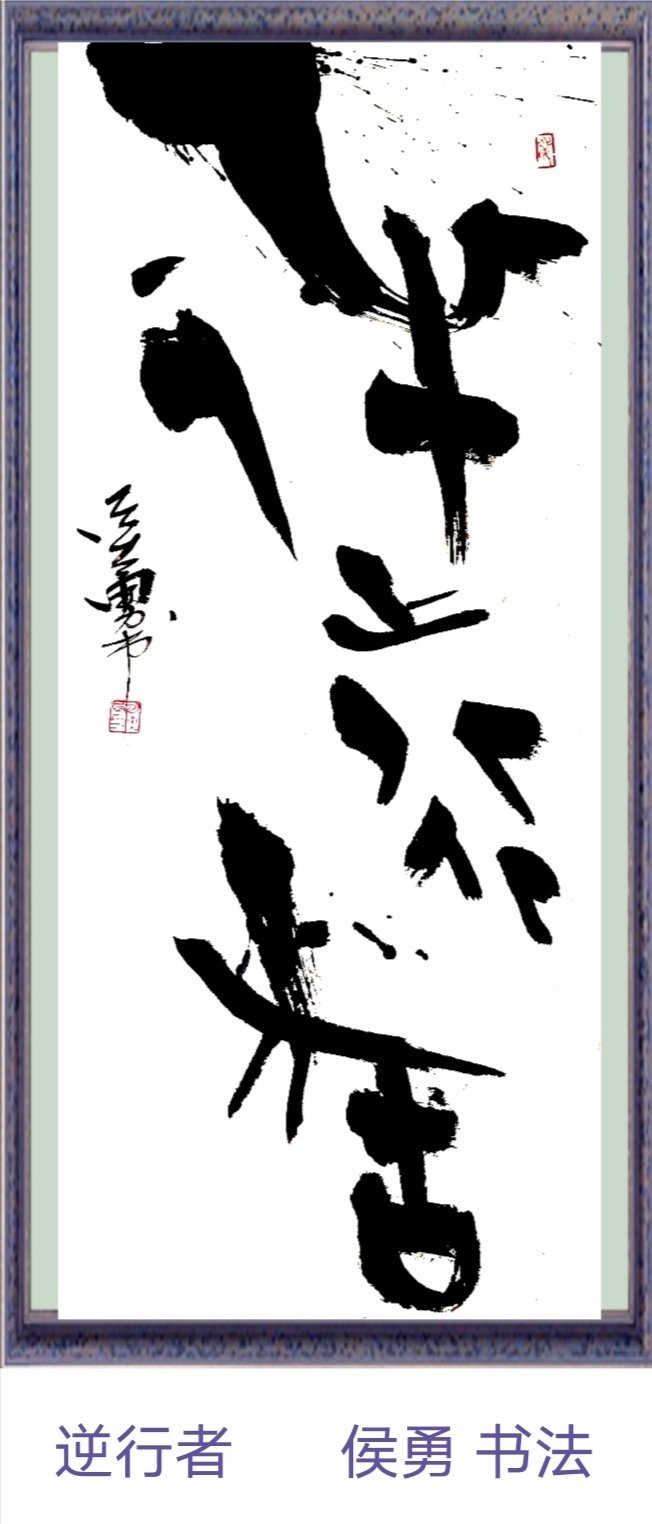 逆行者
侯勇书
逆行者 侯勇 书法